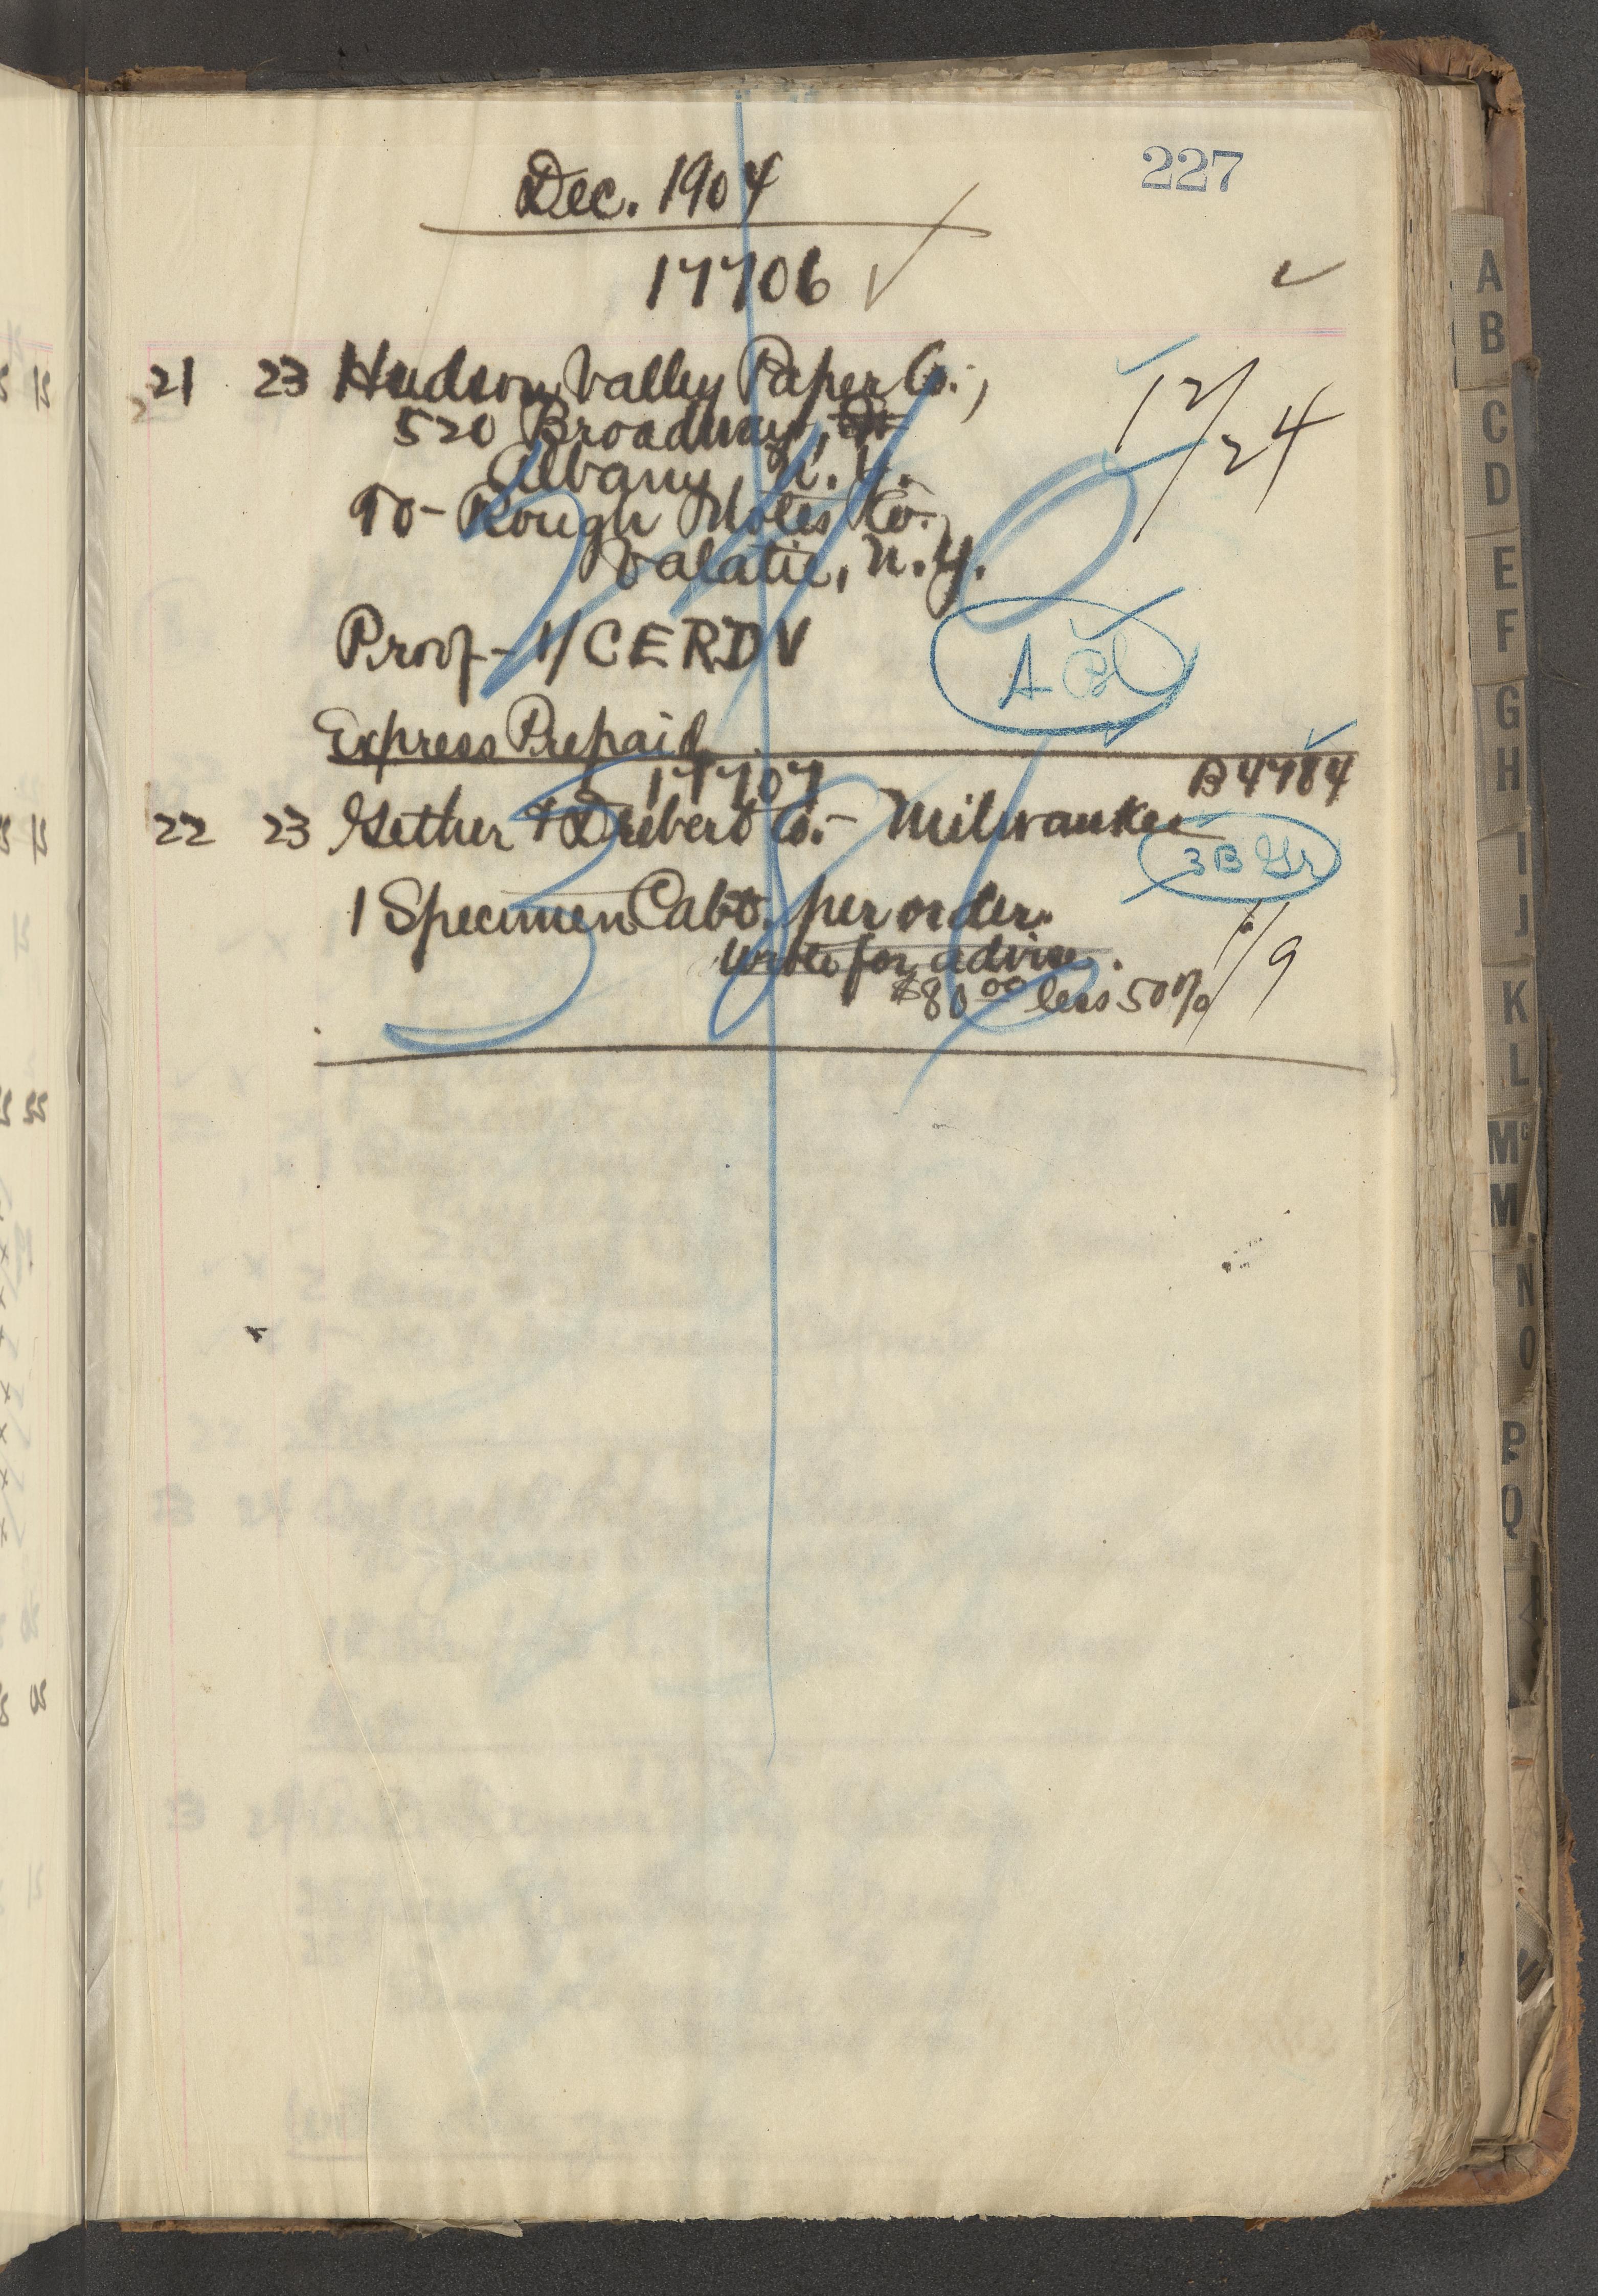 227
Dec. 1904
17706 ✓
21 23 Hudson Valley Paper Co.,
520 Broadway,
Albany, N. Y.
12/24
To- Rough Notes Co.,
Valatie, N. Y.
Proof - 1/CERDV
A Bl
Express Prepaid
17707
B4784
22 23 Gether & Drebert Co. - Milwaukee
3 B Gr
1 Specimen Cabt. per order.
Wrote for advice.
$80 00 less 50%
1/9
A
B
C
D
E
F
G
H
I
J
K
L
Mc
M
N
O
P
Q